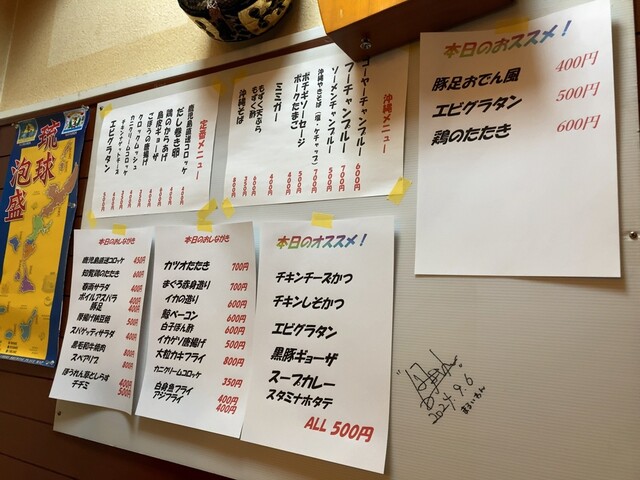 琉球
泡盛
定番メニュー
鹿児島直送コロッケ
だし巻き卵
鶏のからあげ
鳥皮ギョーザ
ごぼうの唐揚げ
クロックムッシュ
カニクリームコロッケ
エビグラタン
沖縄メニュー
ゴーヤーチャンプルー 600円
フーチャンプルー 700円
ソーメンチャンプルー 500円
沖縄やきそば(塩・ケチャップ) 700円
ポチギソーセージ 500円
ポークたまご 400円
ミミガー 400円
もずく酢
もずく天ぷら
沖縄そば
本日のおススメ!
豚足おでん風 400円
エビグラタン 500円
鶏のたたき 600円
本日のおしながき
鹿児島直送コロッケ 450円
知覧鶏のたたき 600円
春雨サラダ 400円
ボイルアスパラ 400円
豚足 400円
厚揚げ納豆焼 500円
スパゲッティサラダ 400円
黒毛和牛焼肉 800円
スペアリブ 800円
ほうれん草としらす 400円
チヂミ 500円
本日のおしながき
カツオたたき 700円
まぐろ赤身造り 700円
イカの造り 600円
鯨ベーコン 600円
白子ポン酢 600円
イカゲソ唐揚げ 500円
大粒カキフライ 800円
カニクリームコロッケ 350円
白身魚フライ 400円
アジフライ 400円
本日のオススメ!
チキンチーズかつ
チキンしそかつ
エビグラタン
黒豚ギョーザ
スープカレー
スタミナホタテ
ALL 500円
2024.9.6